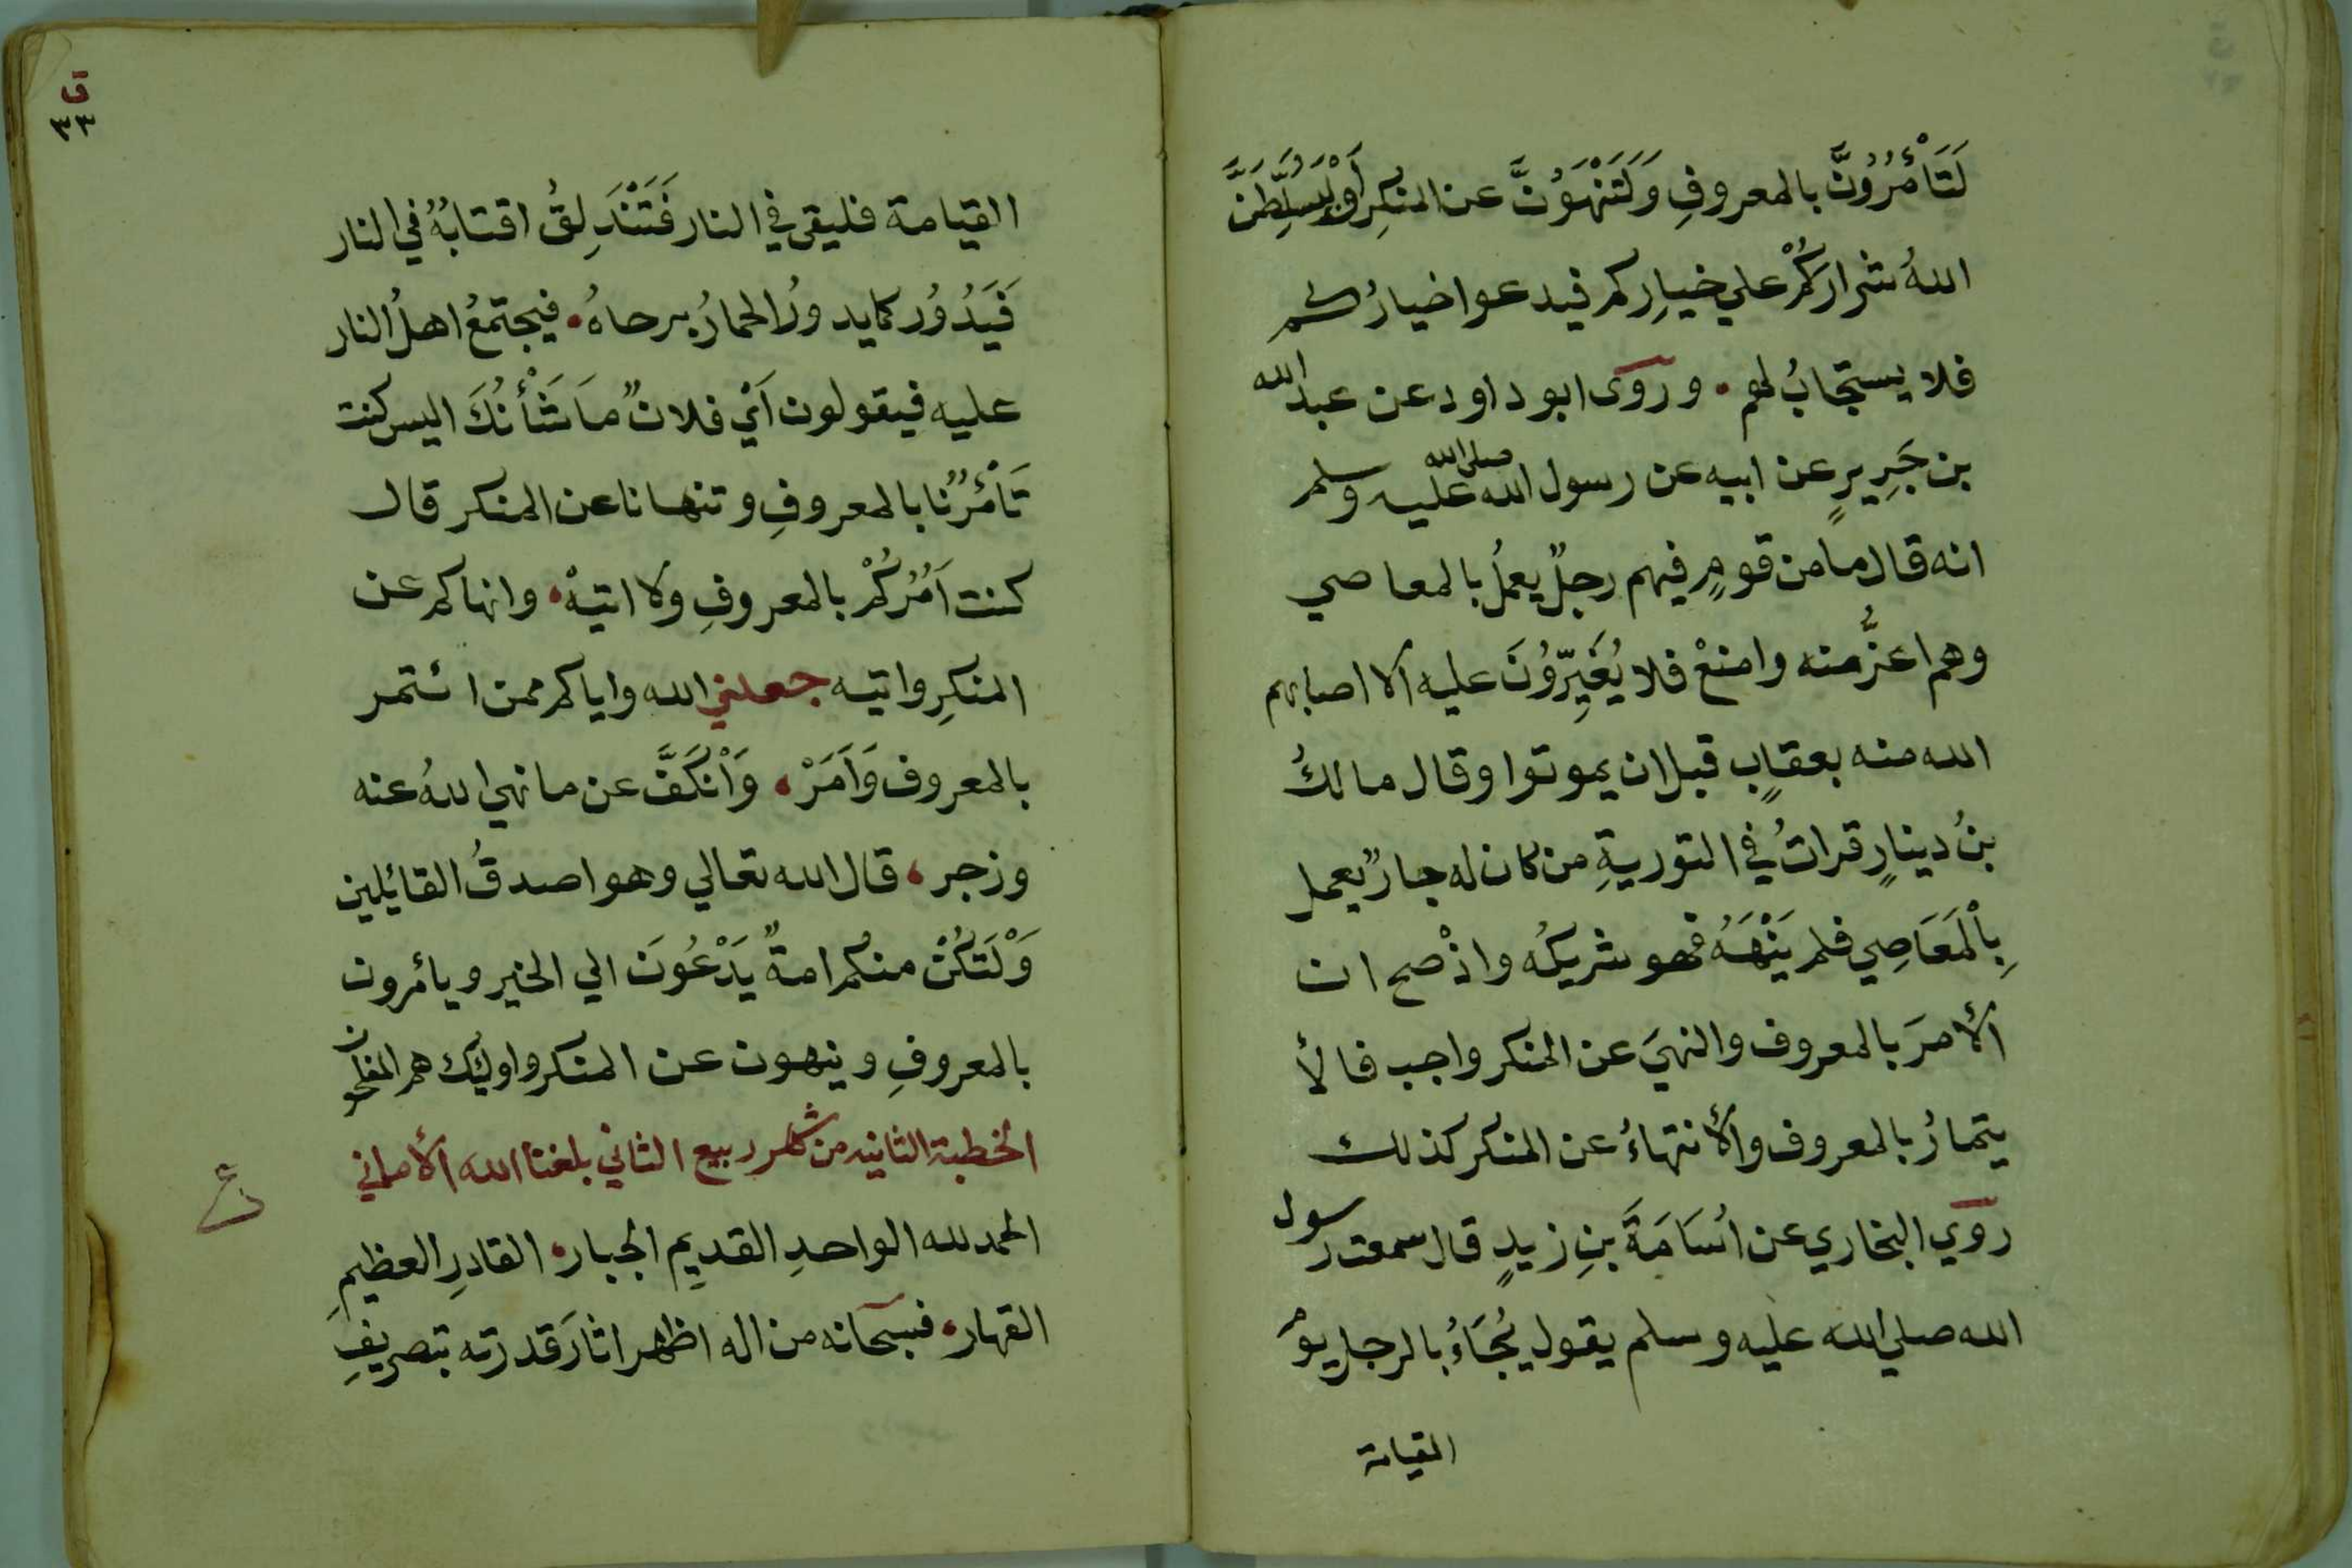 لَتَأْمُرُونَّ بالمعروفِ وَلَتَنْهَوُنَّ عن المنكرِ اَوْلَيُسَلِّطَنَّ
اللهُ شراركُمْ علي خيارِكم فيدعوا خيارُكم
فلا يستجابُ لهم • وروى ابو داود عن عبد الله
بن جَرِيرٍ عن ابيه عن رسول الله صلى الله عليه وسلم
انه قال ما من قومٍ فيهم رجلٌ يعملُ بالمعاصي
وهم اعزُّ منه وامنعْ فلا يُغَيِّرُونَ عليه الا اصابهم
الله منه بعقابٍ قبل ان يموتوا وقال مالكُ
بنُ دينارٍ قراتُ في التوريةِ من كان له جارٌ يعمل
بِالْمَعَاصِي فلم يَنْهَهُ فهو شريكُه واذْ صح ان
الأمرَ بالمعروف والنهيَ عن المنكر واجب فالأ
يتمارُ بالمعروف والأنتهاءُ عن المنكر كذلك
روي البخاري عن اُسَامَةَ بنِ زيدٍ قال سمعت رسول
الله صلي الله عليه وسلم يقول يُجَاءُ بالرجل يومَ
القيامة
ق
٣٣
القيامة فليقى في النار فَتَنْدَلِقُ اقتابُهُ في النار
فَيَدُوُر كما يدورُ الحمارُ برحاهُ • فيجتمعُ اهلُ النار
عليه فيقولون اَيْ فلانٌ ما شَأْنُكَ اليس كنت
تَأْمُرُنا بالمعروفِ وتنهانا عن المنكر قال
كنت اَمُرُكُمْ بالمعروفِ ولا اتيهْ • وانهاكم عن
المنكرِ واتيه جعلني الله واياكم ممن ائتمر
بالمعروف وَاَمَرْ • وَاْنكَفَّ عن ما نهي اللهُ عنه
وزجر • قال الله تعالي وهو اصدقُ القائلين
وَلْتَكُنْ منكُم امةٌ يَدْعُونَ الي الخير ويأمرون
بالمعروفِ وينهون عن المنكر واوليك هم المفلحون
الخطبة الثانيه من شهر ربيع الثاني بلغنا الله الأماني
الحمد لله الواحدِ القديم الجبار • القادرِ العظيمِ
القهار • فسبحانه من اله اظهر اثارَ قدرته بتصريفِ